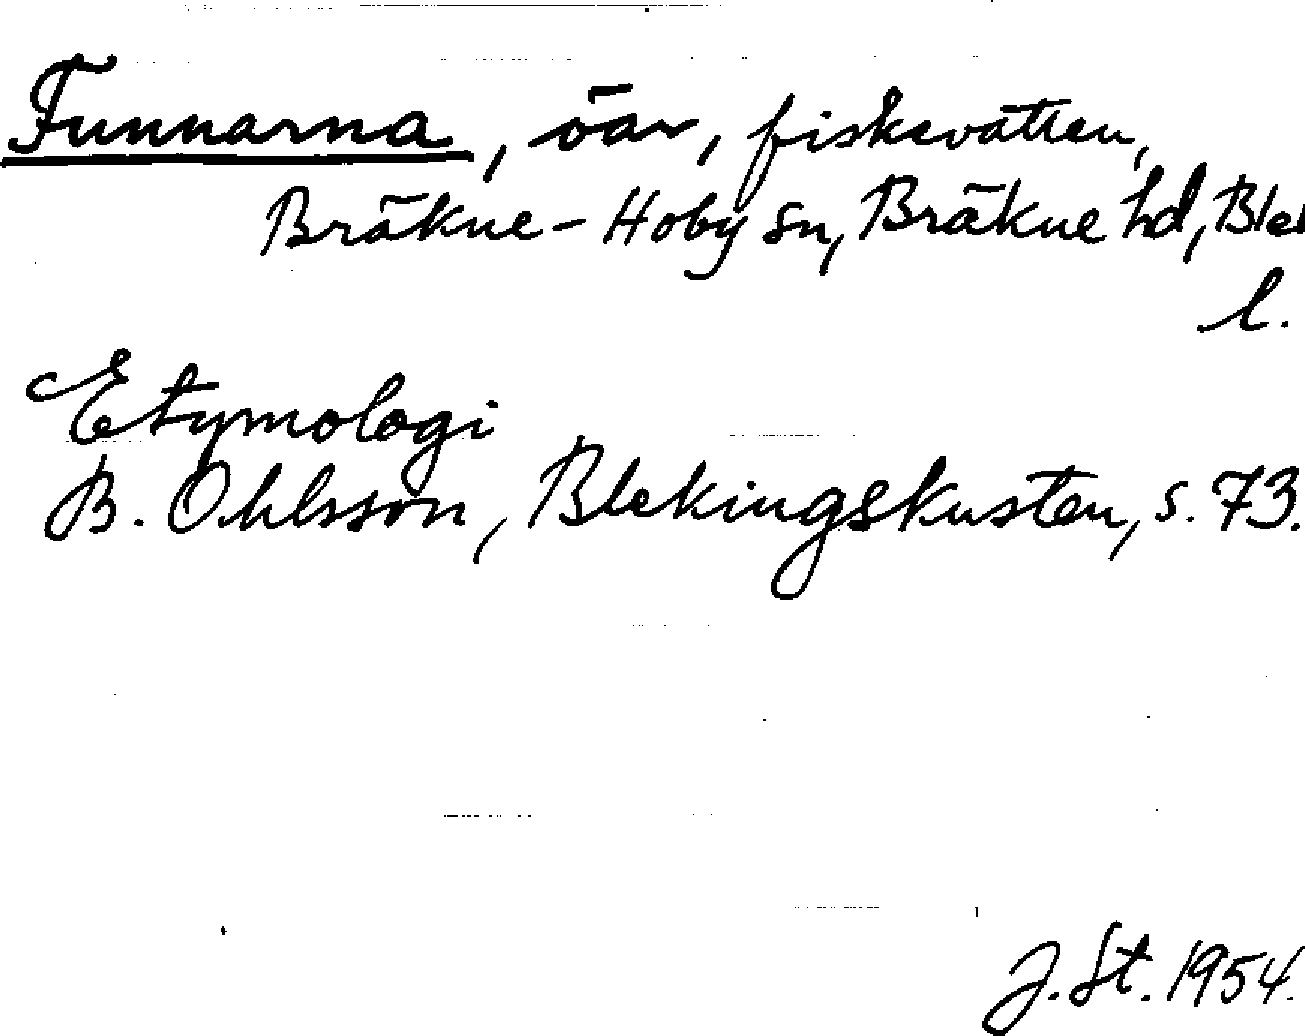 Funnarna, öar, fiskevatten,
Bräkne-Hoby sn, Bräkne hd, Blek
l.
Etymologi
B. Ohlsson, Blekingskusten, s. 73.
J. St. 1954.